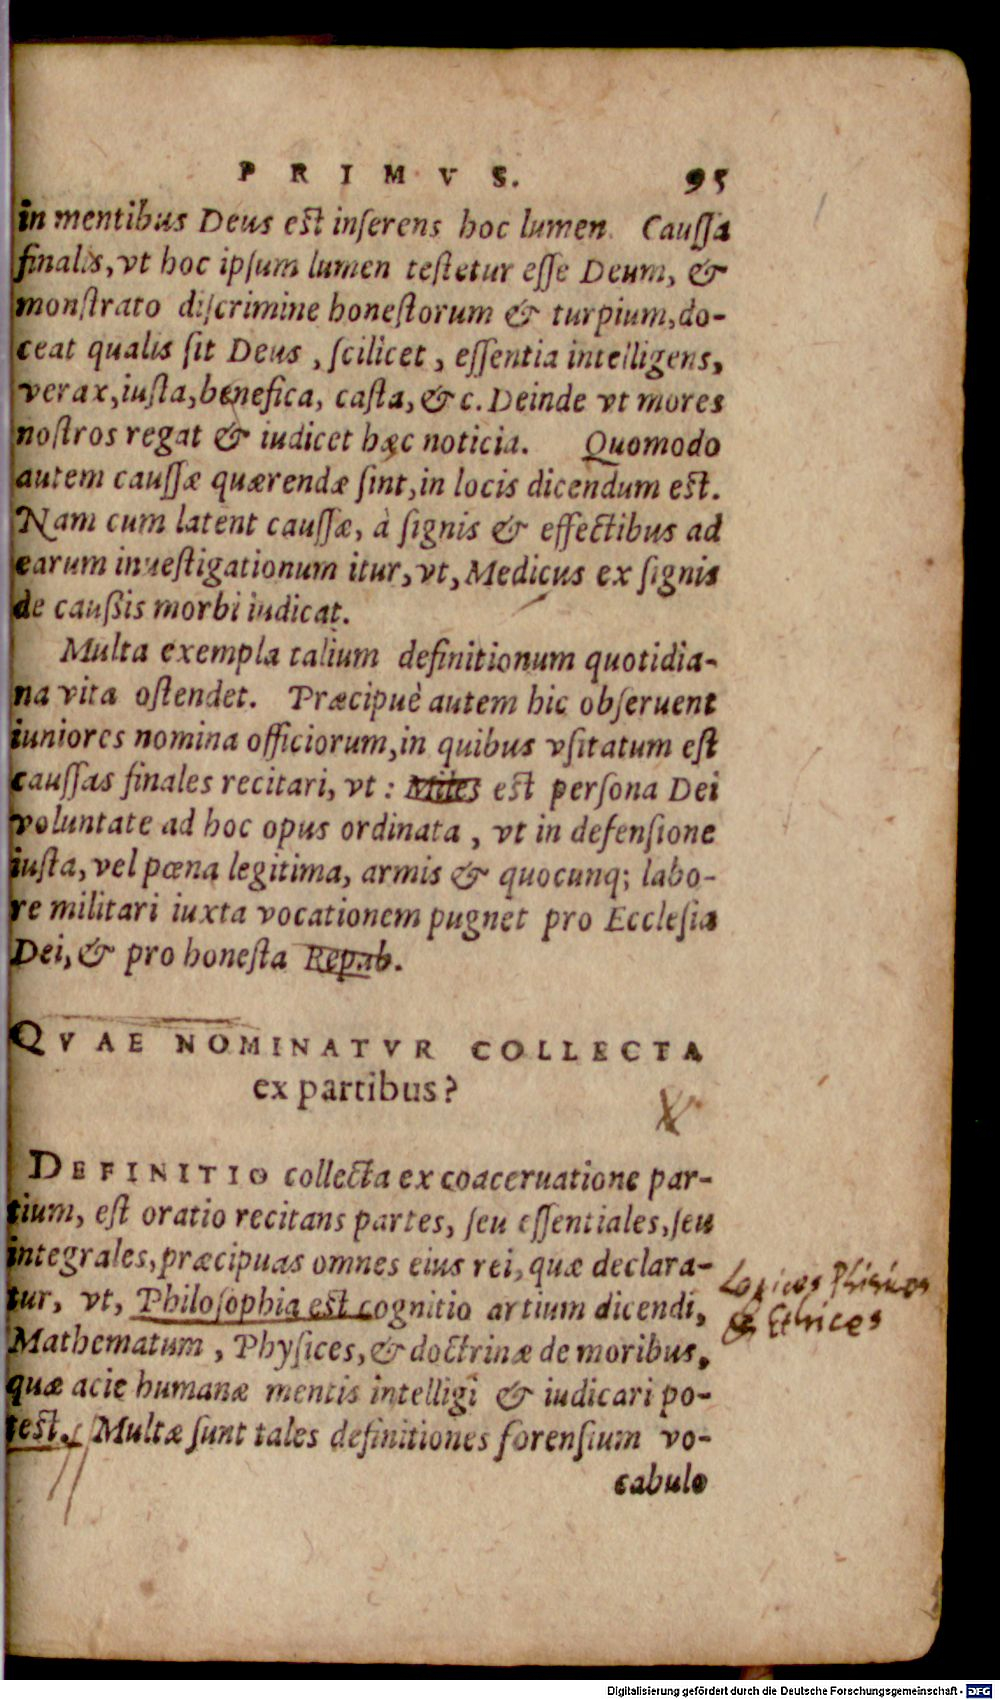 PRIMVS. 95
in mentibus Deus est inſerens hoc lumen. Cauſſa
finalis, vt hoc ipſum lumen teſtetur eſſe Deum, &
monſtrato diſcrimine honeſtorum & turpium, do-
ceat qualis ſit Deus, ſcilicet, eſſentia intelligens,
verax, iuſta, benefica, caſta, &c. Deinde vt mores
noſtros regat & iudicet hæc noticia. Quomodo
autem cauſſæ quærendæ ſint, in locis dicendum est.
Nam cum latent cauſſæ, à ſignis & effectibus ad
earum inueſtigationum itur, vt, Medicus ex ſignis
de cauſsis morbi iudicat.
Multa exempla talium definitionum quotidia-
na vita oſtendet. Præcipuè autem hic obſeruent
iuniores nomina officiorum, in quibus vſitatum eſt
cauſſas finales recitari, vt: Miles est perſona Dei
voluntate ad hoc opus ordinata, vt in defenſione
iuſta, vel pœna legitima, armis & quocunq; labo-
re militari iuxta vocationem pugnet pro Eccleſia
Dei, & pro honeſta Repub.
QVAE NOMINATVR COLLECTA
ex partibus?
DEFINITIO collecta ex coaceruatione par-
tium, eſt oratio recitans partes, ſeu eſſentiales, ſeu
integrales, præcipuas omnes eius rei, quæ declara-
tur, vt, Philoſophia est cognitio artium dicendi,
Logices Phisices
& Ethices
Mathematum, Phyſices, & doctrinæ de moribus,
quæ acie humanæ mentis intelligi & iudicari po-
test. Multæ ſunt tales definitiones forenſium vo-
cabulo
Digitalisierung gefördert durch die Deutsche Forschungsgemeinschaft - DFG